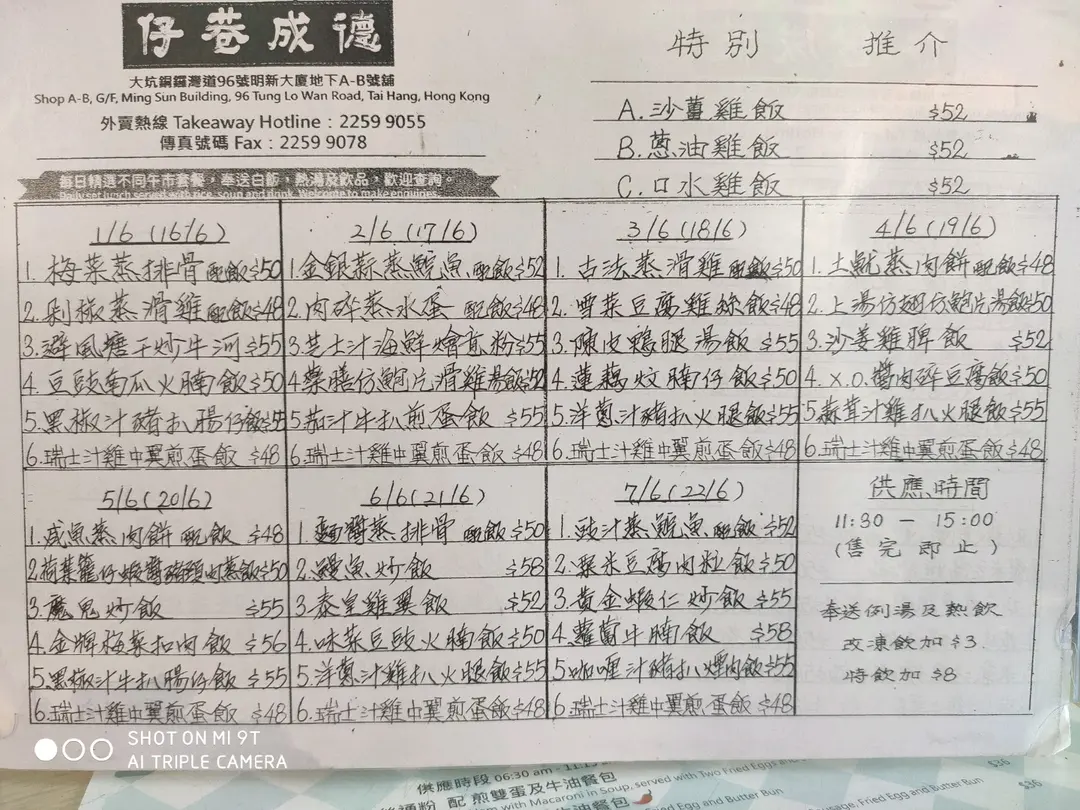 仔巷成德
大坑銅鑼灣道96號明新大廈地下A-B號舖
Shop A-B, G/F, Ming Sun Building, 96 Tung Lo Wan Road, Tai Hang, Hong Kong
外賣熱線 Takeaway Hotline : 2259 9055
傳真號碼 Fax : 2259 9078
每日精選不同午市套餐，奉送白飯，熱湯及飲品，歡迎查詢。
特別 推介
A. 沙薑雞飯 $52
B. 蔥油雞飯 $52
C. 口水雞飯 $52
1/6 (16/6)
1. 梅菜蒸排骨配飯$50
2. 剁椒蒸滑雞配飯$48
3. 避風塘干炒牛河$55
4. 豆豉南瓜火腩飯$50
5. 黑椒汁豬扒腸仔飯$55
6. 瑞士汁雞中翼煎蛋飯$48
2/6 (17/6)
1. 金銀蒜蒸鯇魚配飯$52
2. 肉碎蒸水蛋配飯$48
3. 芝士汁海鮮燴煎粉$55
4. 藥膳仿鮑片滑雞湯飯$52
5. 茄汁牛扒煎蛋飯 $55
6. 瑞士汁雞中翼煎蛋飯$48
3/6 (18/6)
1. 古法蒸滑雞配飯$50
2. 雪菜豆腐雞絲飯$48
3. 陳皮鵝腿湯飯$55
4. 蓮藕炆腩仔飯$50
5. 洋蔥汁豬扒火腿飯$55
6. 瑞士汁雞中翼煎蛋飯$48
4/6 (19/6)
1. 土魷蒸肉餅配飯$48
2. 上湯仿翅仿鮑片湯飯$50
3. 沙姜雞脾飯 $52
4. X.O.醬肉碎豆腐飯$50
5. 蒜茸汁雞扒火腿飯$55
6. 瑞士汁雞中翼煎蛋飯$48
5/6 (20/6)
1. 咸魚蒸肉餅配飯$48
2. 荷葉籠仔蝦醬豬頸肉蒸飯$50
3. 魔鬼炒飯 $55
4. 金牌梅菜扣肉飯$56
5. 黑椒汁牛扒腸仔飯$55
6. 瑞士汁雞中翼煎蛋飯$48
6/6 (21/6)
1. 麵醬蒸排骨配飯$50
2. 鰻魚炒飯 $58
3. 泰皇雞翼飯 $52
4. 味菜豆豉火腩飯$50
5. 洋蔥汁雞扒火腿飯$55
6. 瑞士汁雞中翼煎蛋飯$48
7/6 (22/6)
1. 豉汁蒸鯇魚配飯$52
2. 粟米豆腐肉粒飯$50
3. 黃金蝦仁炒飯$55
4. 蘿蔔牛腩飯 $58
5. 咖喱汁豬扒煙肉飯$55
6. 瑞士汁雞中翼煎蛋飯$48
供應時間
11:30 — 15:00
(售完即止)
奉送例湯及熱飲
改凍飲加$3.
特飲加$8
SHOT ON MI 9T
AI TRIPLE CAMERA
供應時段 06:30 am - 11:
配 煎雙蛋及牛油餐包
with Macaroni in Soup, served with Two Fried Eggs and
Sausage, Fried Egg and Butter Bun
Fried Egg and Butter Bun
$36